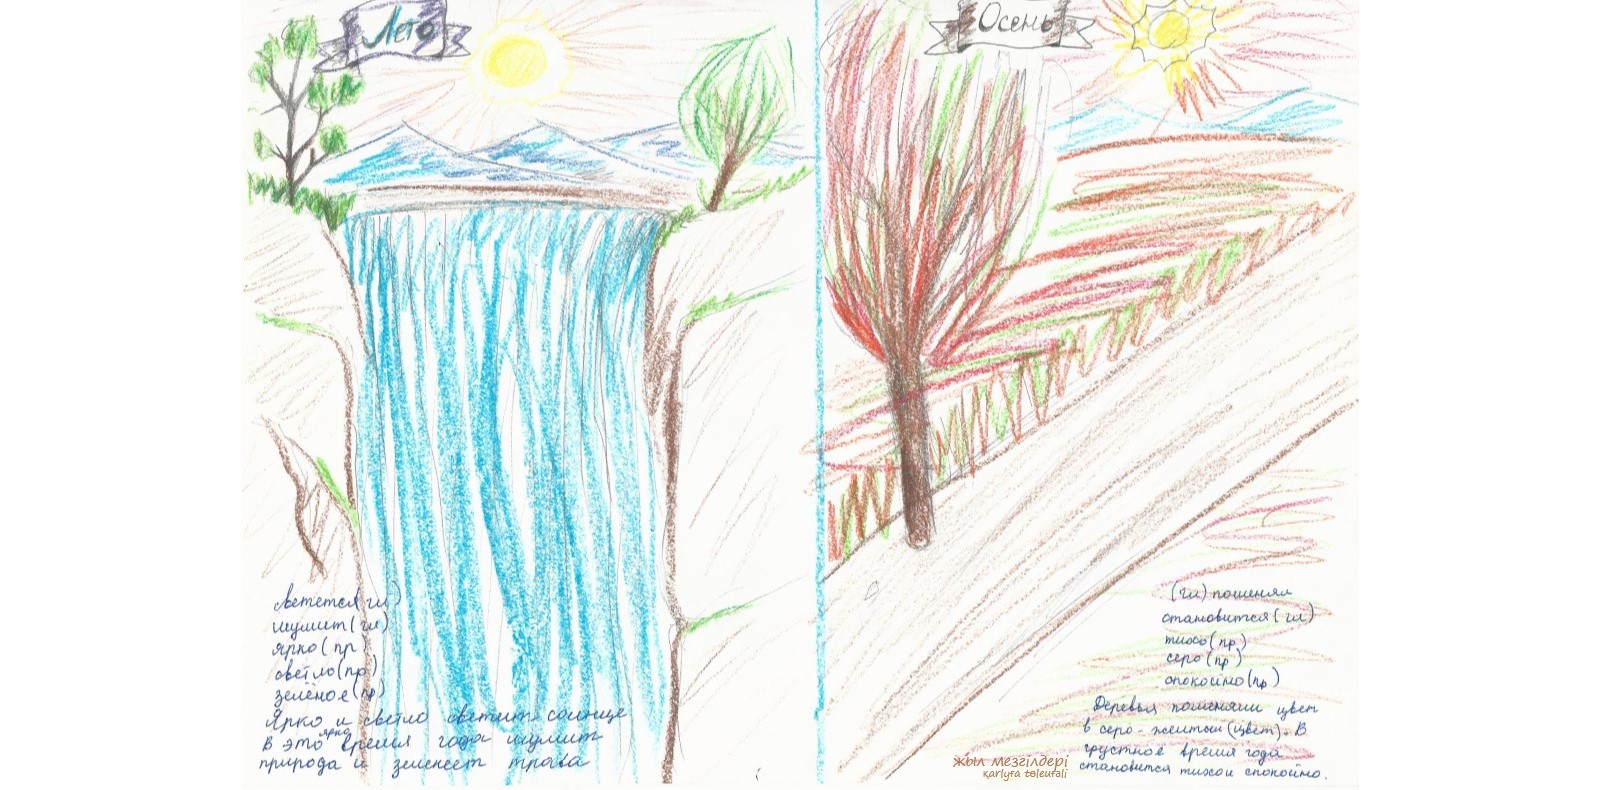 Лето
Осень
шумит (гл)
ярко (пр)
светло (пр)
зелёное (пр)
Ярко и светло светит солнце
В это ярко время года шумит
природа и зеленеет трава
(гл) поменял
становится (гл)
тихо (пр)
серо (пр)
спокойно (пр)
Деревья поменяли цвет
в серо-желтый (цвет). В
грустное время года
становится тихо и спокойно.
жыл мезгілдері
karlyfa toleufali